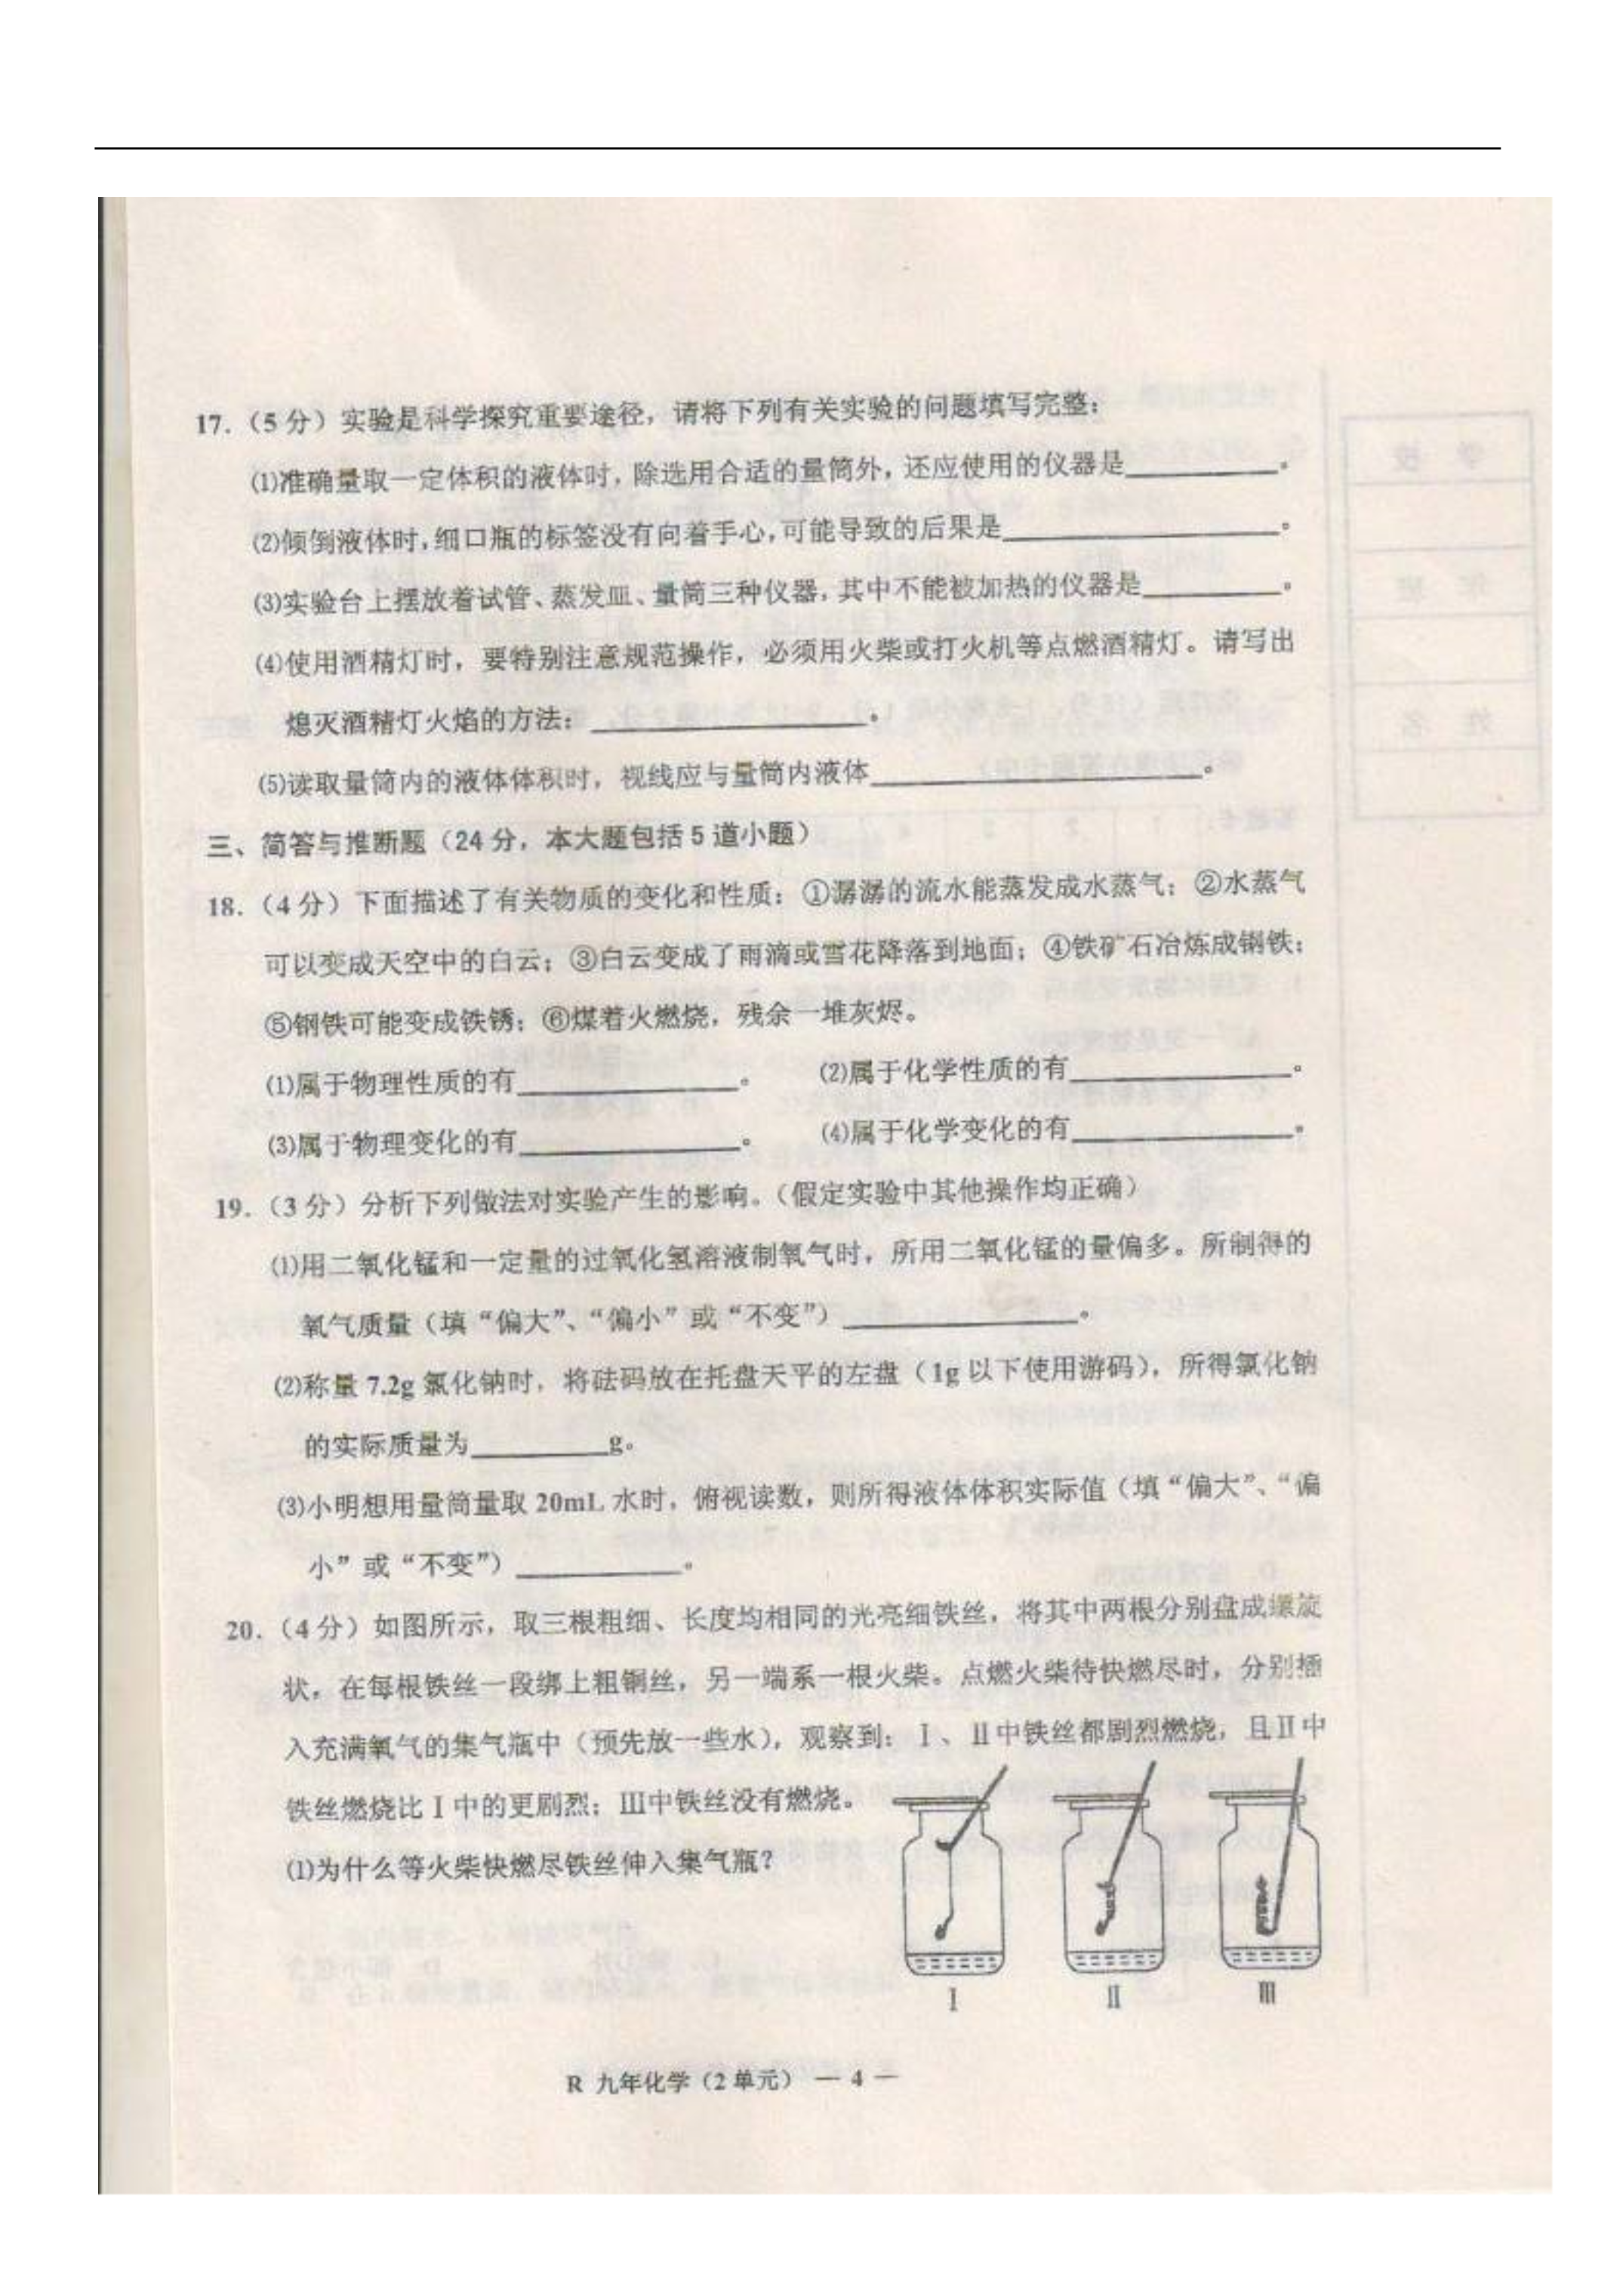 17.（5分）实验是科学探究重要途径，请将下列有关实验的问题填写完整：
⑴准确量取一定体积的液体时，除选用合适的量筒外，还应使用的仪器是__________。
⑵倾倒液体时，细口瓶的标签没有向着手心，可能导致的后果是____________________。
⑶实验台上摆放着试管、蒸发皿、量筒三种仪器，其中不能被加热的仪器是__________。
⑷使用酒精灯时，要特别注意规范操作，必须用火柴或打火机等点燃酒精灯。请写出
熄灭酒精灯火焰的方法：____________________。
⑸读取量筒内的液体体积时，视线应与量筒内液体________________________。
三、简答与推断题（24分，本大题包括5道小题）
18.（4分）下面描述了有关物质的变化和性质：①潺潺的流水能蒸发成水蒸气；②水蒸气
可以变成天空中的白云；③白云变成了雨滴或雪花降落到地面；④铁矿石冶炼成钢铁；
⑤钢铁可能变成铁锈；⑥煤着火燃烧，残余一堆灰烬。
⑴属于物理性质的有________________。 ⑵属于化学性质的有________________。
⑶属于物理变化的有________________。 ⑷属于化学变化的有________________。
19.（3分）分析下列做法对实验产生的影响。（假定实验中其他操作均正确）
⑴用二氧化锰和一定量的过氧化氢溶液制氧气时，所用二氧化锰的量偏多。所制得的
氧气质量（填“偏大”、“偏小”或“不变”）________________。
⑵称量7.2g氯化钠时，将砝码放在托盘天平的左盘（1g以下使用游码），所得氯化钠
的实际质量为__________g。
⑶小明想用量筒量取20mL水时，俯视读数，则所得液体体积实际值（填“偏大”、“偏
小”或“不变”）____________。
20.（4分）如图所示，取三根粗细、长度均相同的光亮细铁丝，将其中两根分别盘成螺旋
状。在每根铁丝一段绑上粗铜丝，另一端系一根火柴。点燃火柴待快燃尽时，分别插
入充满氧气的集气瓶中（预先放一些水），观察到：Ⅰ、Ⅱ中铁丝都剧烈燃烧，且Ⅱ中
铁丝燃烧比Ⅰ中的更剧烈；Ⅲ中铁丝没有燃烧。
⑴为什么等火柴快燃尽铁丝伸入集气瓶？
Ⅰ Ⅱ Ⅲ
R 九年化学（2单元） — 4 —